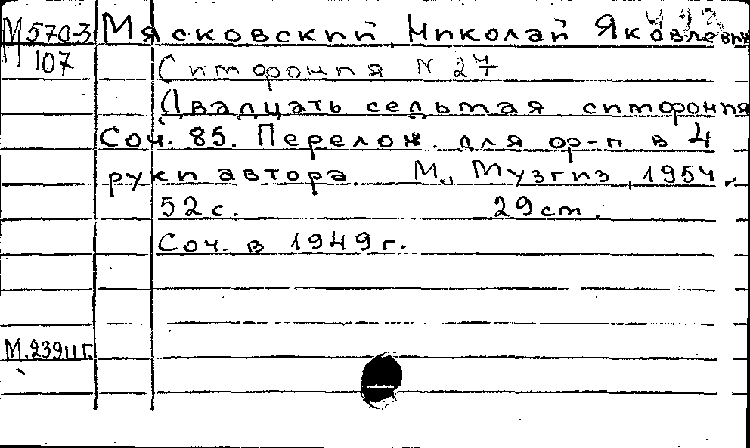 М 570-3 Мясковский, Николай Яковлевич
107 Симфония N 27
Двадцать седьмая симфония
Соч. 85. Перелож. для ф-п в 4
руки автора М., Музгиз, 1954.
52 с. 29 см.
Соч. в 1949 г.